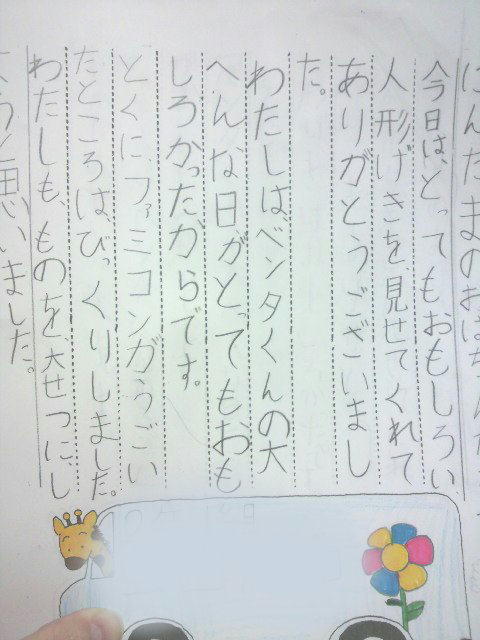 にんたまのおばちゃんたち
今日は、とってもおもしろい
人形げきを、見せてくれて
ありがとうございまし
た。
わたしは、ベンタくんの大
へんな日、がとってもおも
しろかったからです。
とくに、ファミコンがうごい
たところは、びっくりしました。
わたしも、ものを、大せつに、し
ようと思いました。